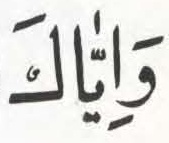 وَاِيَّاكَ